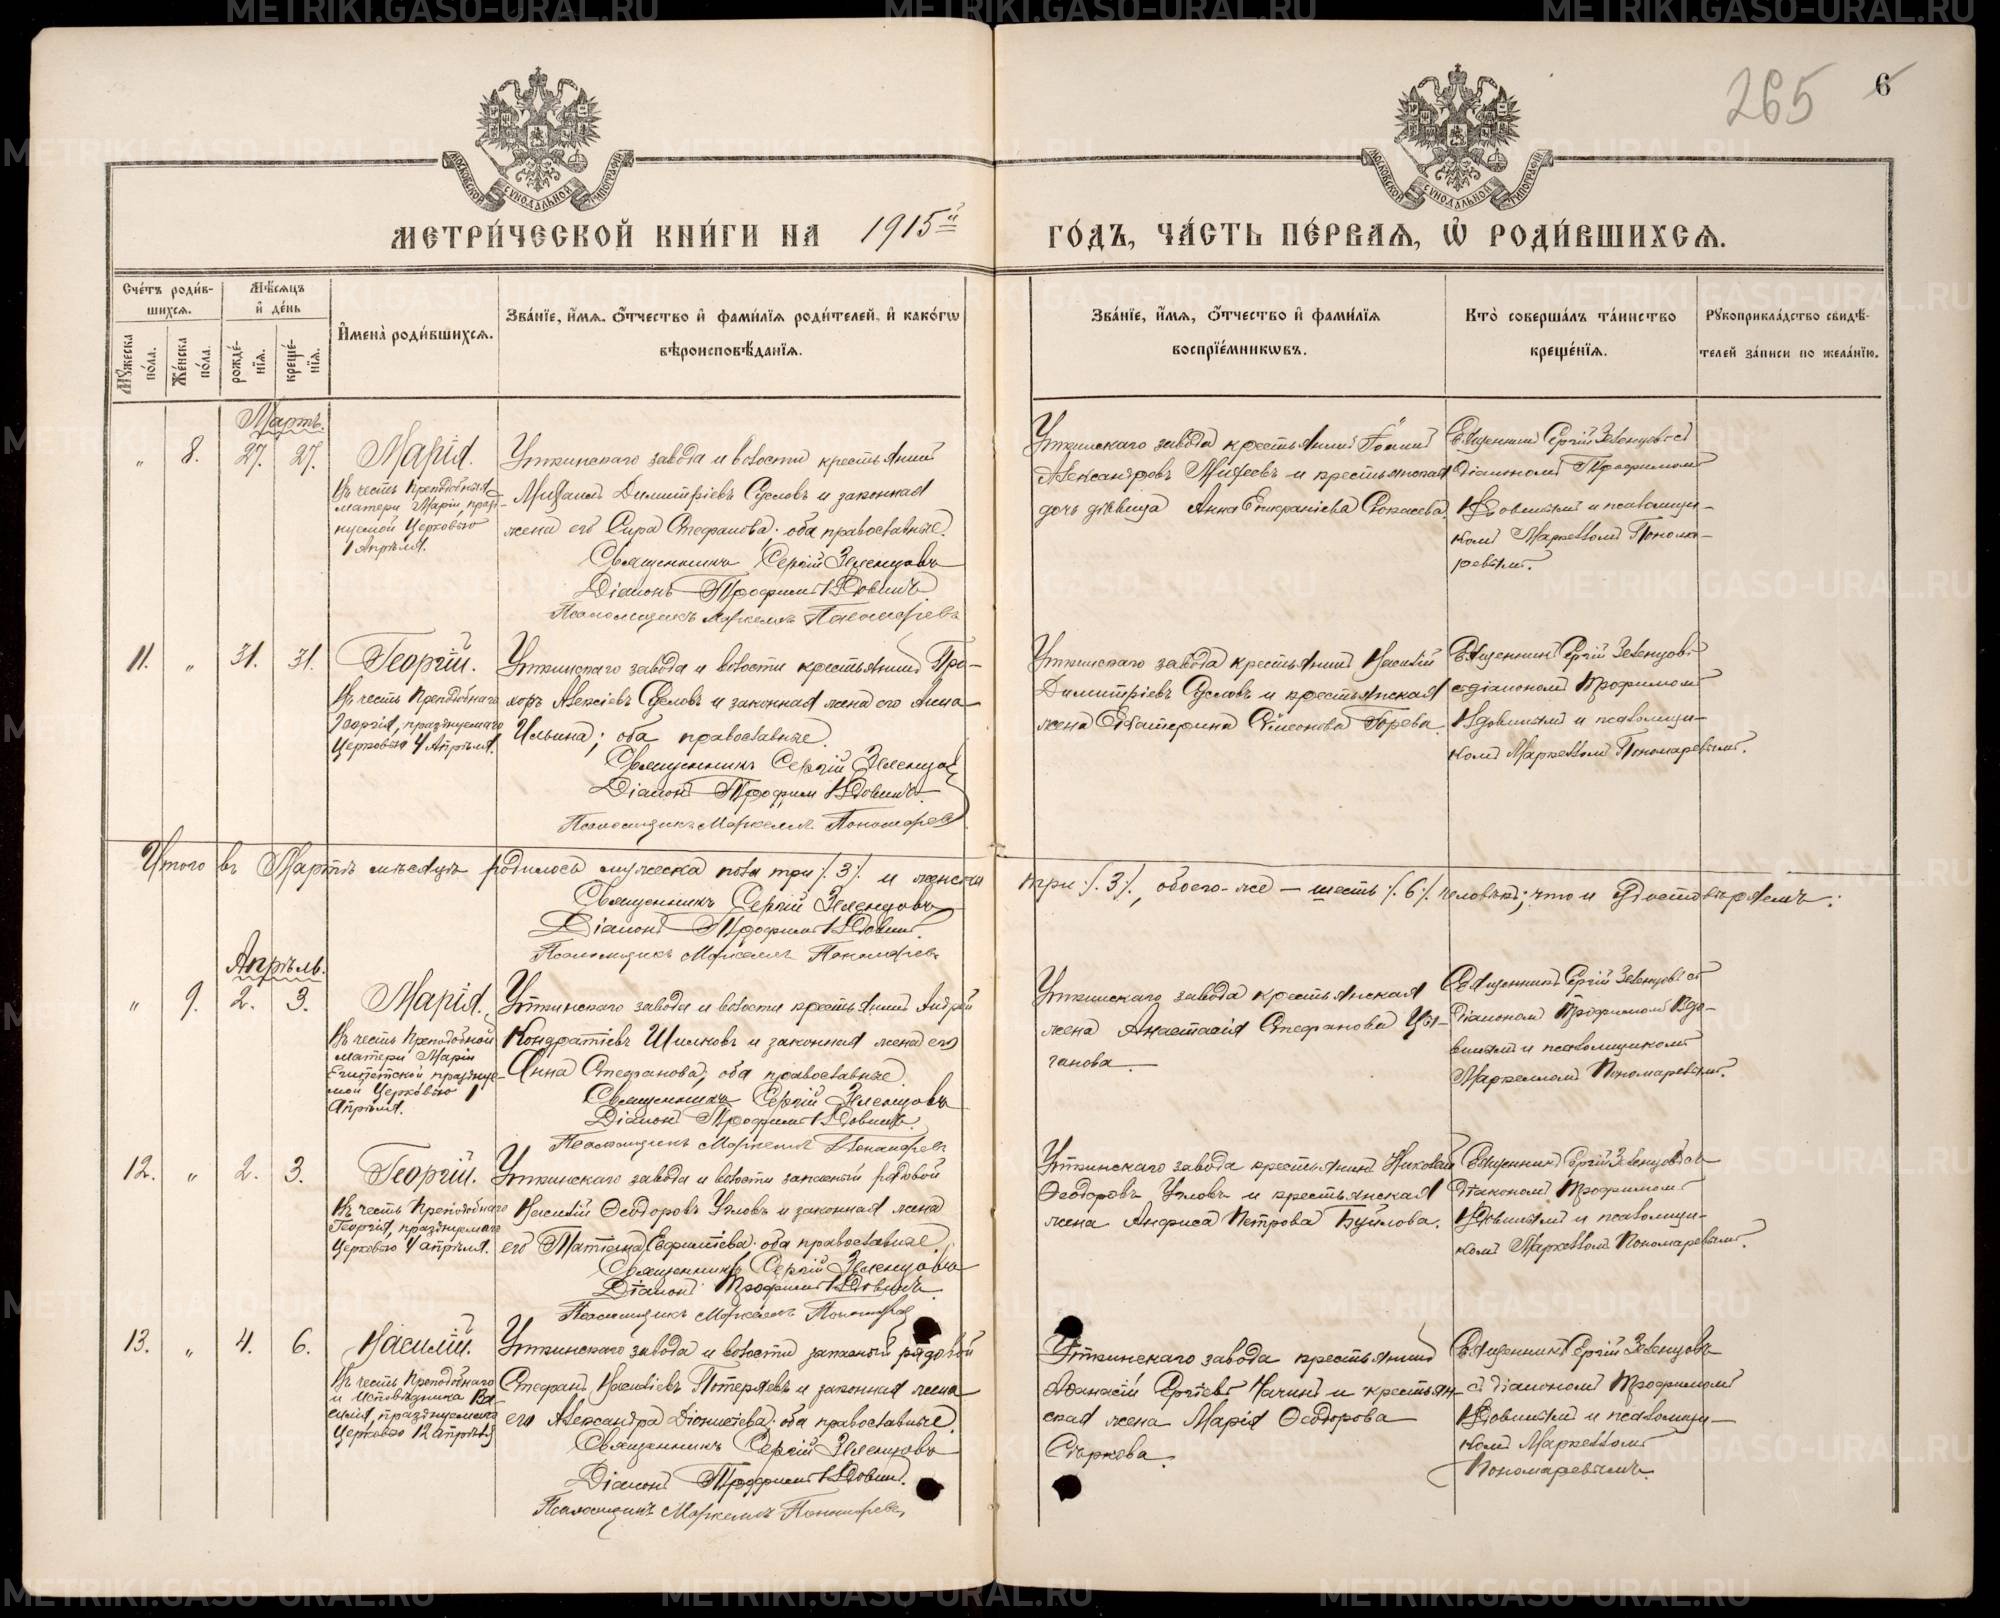 265 6
МЕТРИ́ЧЕСКОЙ КНИ́ГИ НА 1915й
ГО́ДЪ, ЧА́СТЬ ПЕ́РВАЯ, Ѽ РОДИ́ВШИХСЯ.
Сче́тъ роди́вшихся.
Му́жеска по́ла.
Же́нска по́ла.
Мѣ́сяцъ и҆ де́нь
рожде́нїя.
креще́нїя.
И҆мена̀ роди́вшихся.
Зва́нїе, и҆́мя, ѻ҆́тчество и҆ фами́лїя роди́телей, и҆ како́гѡ
вѣроисповѣ́данїя.
Зва́нїе, и҆́мя, ѻ҆́тчество и҆ фами́лїя
воспрїе́мникѡвъ.
Кто̀ соверша́лъ та́инство
креще́нїя.
Рукоприкла́дство свидѣ́-
телей за́писи по жела́нїю.
Мартъ.
" 8. 27. 27.
Марія.
Въ честь Преподобныя
матери Маріи, празд-
нуемой Церковью
1 Апрѣля.
Уткинскаго завода и волости крестьянинъ
Димитріевъ Сусловъ и законная
жена его Стефанова; оба православные.
Священникъ Сергій Зеленцовъ
Діаконъ Трофимъ Вдовинъ
Псаломщикъ Маркеллъ Пономаревъ
Уткинскаго завода крестьянинъ
Александровъ и крестьянская
дочь дѣвица Анна
Священникъ Сергій Зеленцовъ съ
Діакономъ Трофимомъ
Вдовинымъ и псаломщи-
комъ Маркелломъ Понома-
ревымъ.
11. " 31. 31.
Георгій.
Въ честь Преподобнаго
Георгія, празднуемаго
Церковью 4 Апрѣля.
Уткинскаго завода и волости крестьянинъ Про-
хоръ Алексіевъ Сусловъ и законная жена его Анна
Ильина; оба православные.
Священникъ Сергій Зеленцовъ
Діаконъ Трофимъ Вдовинъ
Псаломщикъ Маркеллъ Пономаревъ
Уткинскаго завода крестьянинъ Василій
Димитріевъ Сусловъ и крестьянская
жена Екатерина Симеонова
Священникъ Сергій Зеленцовъ
съ діакономъ Трофимомъ
Вдовинымъ и псаломщи-
комъ Маркелломъ Пономаревымъ.
Итого въ Мартѣ мѣсяцѣ родилось мужеска пола три /.3/. и женска
три /.3/., обоего-же – шесть /.6/. человѣкъ; что и удостовѣряемъ:
Священникъ Сергій Зеленцовъ
Діаконъ Трофимъ Вдовинъ
Псаломщикъ Маркеллъ Пономаревъ
Апрѣль.
" 9. 2. 3.
Марія.
Въ честь Преподобной
матери Маріи
Египетской празднуе-
мой Церковью 1
Апрѣля.
Уткинскаго завода и волости крестьянинъ Андрей
Кондратіевъ Шилковъ и законная жена его
Анна Стефанова; оба православные.
Священникъ Сергій Зеленцовъ
Діаконъ Трофимъ Вдовинъ
Псаломщикъ Маркеллъ Пономаревъ
Уткинскаго завода крестьянская
жена Анастасія Стефанова Цы-
ганова
Священникъ Сергій Зеленцовъ съ
Діакономъ Трофимомъ Вдо-
винымъ и псаломщикомъ
Маркелломъ Пономаревымъ.
12. " 2. 3.
Георгій.
Въ честь Преподобнаго
Георгія, празднуемаго
Церковью 4 апрѣля.
Уткинскаго завода и волости запасный рядовой
Василій Ѳеодоровъ Угловъ и законная жена
его Татіана оба православные.
Священникъ Сергій Зеленцовъ
Діаконъ Трофимъ Вдовинъ
Псаломщикъ Маркеллъ Пономаревъ
Уткинскаго завода крестьянинъ Николай
Ѳеодоровъ Угловъ и крестьянская
жена Анфиса Петрова Буйлова.
Священникъ Сергій Зеленцовъ съ
Діакономъ Трофимомъ
Вдовинымъ и псаломщи-
комъ Маркелломъ Пономаревымъ.
13. " 4. 6.
Василій.
Въ честь Преподобнаго
и Исповѣдника Ва-
силія, празднуемаго
Церковью 12 Апрѣля
Уткинскаго завода и волости запасный рядовой
Стефанъ Василіевъ Потеряевъ и законная жена
его Александра Діонисіева; оба православные.
Священникъ Сергій Зеленцовъ
Діаконъ Трофимъ Вдовинъ.
Псаломщикъ Маркеллъ Пономаревъ
Уткинскаго завода крестьянинъ
Аѳанасій Сергіевъ и крестьян-
ская жена Марія Ѳеодорова
Старкова.
Священникъ Сергій Зеленцовъ
съ діакономъ Трофимомъ
Вдовинымъ и псаломщи-
комъ Маркелломъ
Пономаревымъ.
METRIKI.GASO-URAL.RU